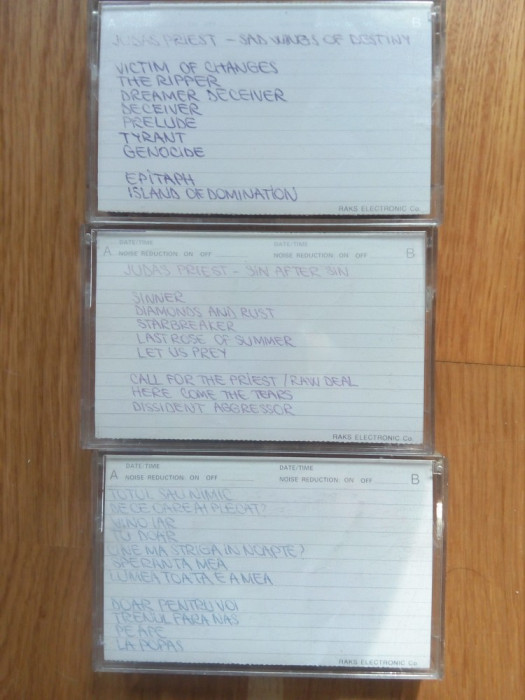 B
JUDAS PRIEST - SAD WINGS OF DESTINY
VICTIM OF CHANGES
THE RIPPER
DREAMER DECEIVER
DECEIVER
PRELUDE
TYRANT
GENOCIDE
EPITAPH
ISLAND OF DOMINATION
RAKS ELECTRONIC Co.
A DATE/TIME DATE/TIME B
NOISE REDUCTION: ON OFF NOISE REDUCTION: ON OFF
JUDAS PRIEST - SIN AFTER SIN
SINNER
DIAMONDS AND RUST
STARBREAKER
LAST ROSE OF SUMMER
LET US PREY
CALL FOR THE PRIEST / RAW DEAL
HERE COME THE TEARS
DISSIDENT AGGRESSOR
RAKS ELECTRONIC Co.
A DATE/TIME DATE/TIME B
NOISE REDUCTION: ON OFF NOISE REDUCTION: ON OFF
TOTUL SAU NIMIC
DE CE OARE AI PLECAT?
VINO IAR
TU DOAR
CINE MA STRIGA IN NOAPTE?
SPERANTA MEA
LUMEA TOATA E A MEA
DOAR PENTRU VOI
TRENUL FARA NAS
PE APE
LA POPAS
RAKS ELECTRONIC Co.